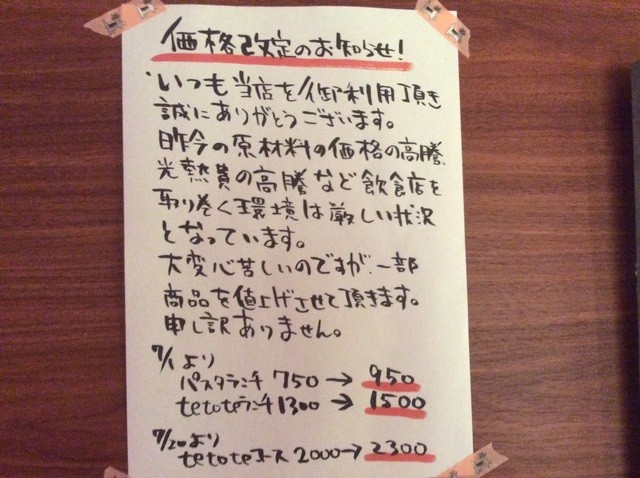 価格改定のお知らせ!
いつも当店を御利用頂き
誠にありがとうございます。
昨今の原材料の価格の高騰、
光熱費の高騰など飲食店を
取り巻く環境は厳しい状況
となっています。
大変心苦しいのですが、一部
商品を値上げさせて頂きます。
申し訳ありません。
7/1より
パスタランチ 750→950
tetoteランチ1300→1500
7/20より
tetoteコース2000→2300